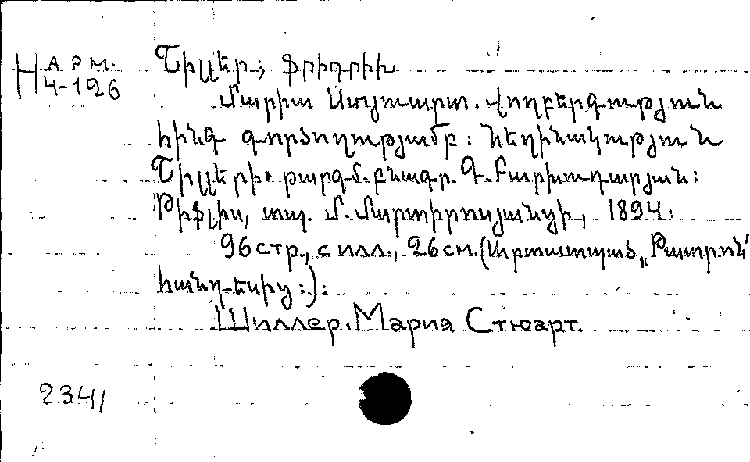 АРМ.
Н 4-126
Շիլլեր, Ֆրիդրիխ
Մարիա Ստյուարտ. վողբերգություն
հինգ գործողությամբ: Հեղինակություն
Շիլլերի: թարգմ. բնագր. Գ. Բարխուդարյան:
Թիֆլիս, տպ. Մ. Մարտիրոսյանցի, 1894:
96 стр., с илл., 26 см. (Արտատպած „Թատրոն"
հանդ-եսից:):
Шиллер. Мария Стюарт.
2341